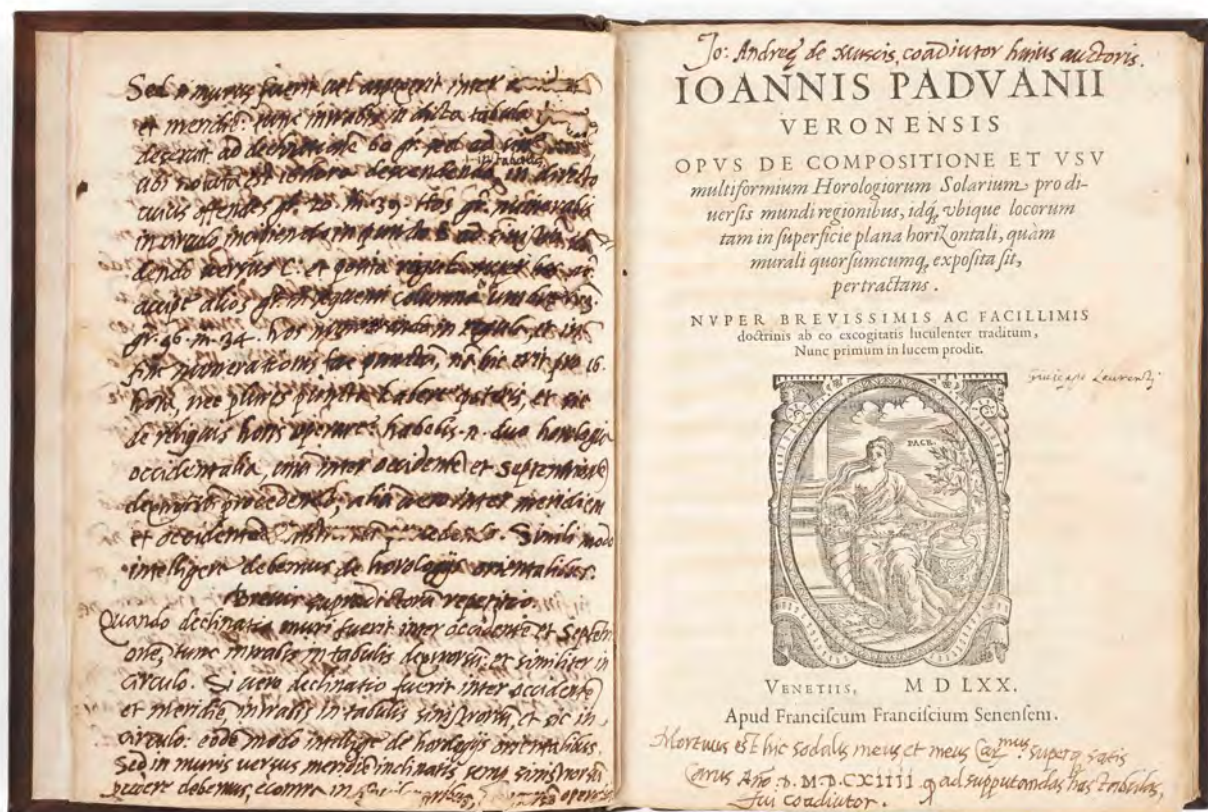 Sed si murus fuerit vel
et meridiē: tunc intrabis in dicta tabula
ad declinationē 60 gr. sed ad
in tabula
ubi notata est descendendo in directo
cuius offendes gr. 20. m. 39. Hos gr. numerabis
in circulo ad
dendo versus C. et
accipe alios gr. in sequenti columna
gr. 46. m. 34. hos numerando in regula, et in
fine numerationis fac punctū, nā hic erit pro 16.
hora, nec plures puncta habere poteris, et sic
de reliquis horis operare: habebis .n. duo horologia
occidentalia, unū inter occidentē et Septentrionē
procedendo, aliū vero inter meridiem
et occidentem Simili modo
intelligere debemus de horologijs orientalibus.
Brevis supradictorū repetitio.
Quando declinatio muri fuerit inter occidentē et Septentri
onē, tunc intrabis in tabulis deorsorū: et similiter in
circulo. Si vero declinatio fuerit inter occidentē
et meridiē, intrabis in tabulis sinistrorsū, et sic in
circulo: eodē modo intellige de horologijs orientalibus.
Sed in muris versus meridiē inclinatis, semp sinistrorsū
debemus, econtra in
Jo: Andreę de Muscis, coadiutor huius auctoris.
IOANNIS PADVANII
VERONENSIS
OPVS DE COMPOSITIONE ET VSV
multiformium Horologiorum Solarium pro di-
uersis mundi regionibus, idq́, vbique locorum
tam in superficie plana horizontali, quam
murali quorsumcumq, exposita sit,
pertractans.
NVPER BREVISSIMIS AC FACILLIMIS
doctrinis ab eo excogitatis luculenter traditum,
Nunc primum in lucem prodit.
Laurentij
PACE.
VENETIIS, M D LXX.
Apud Franciscum Franciscium Senensem.
Mortuus est hic sodalis meus et meus Carmus superq satis
Carus Año D. M.D.CXIIII q ad supputandas has tabulas,
fui coadiutor.